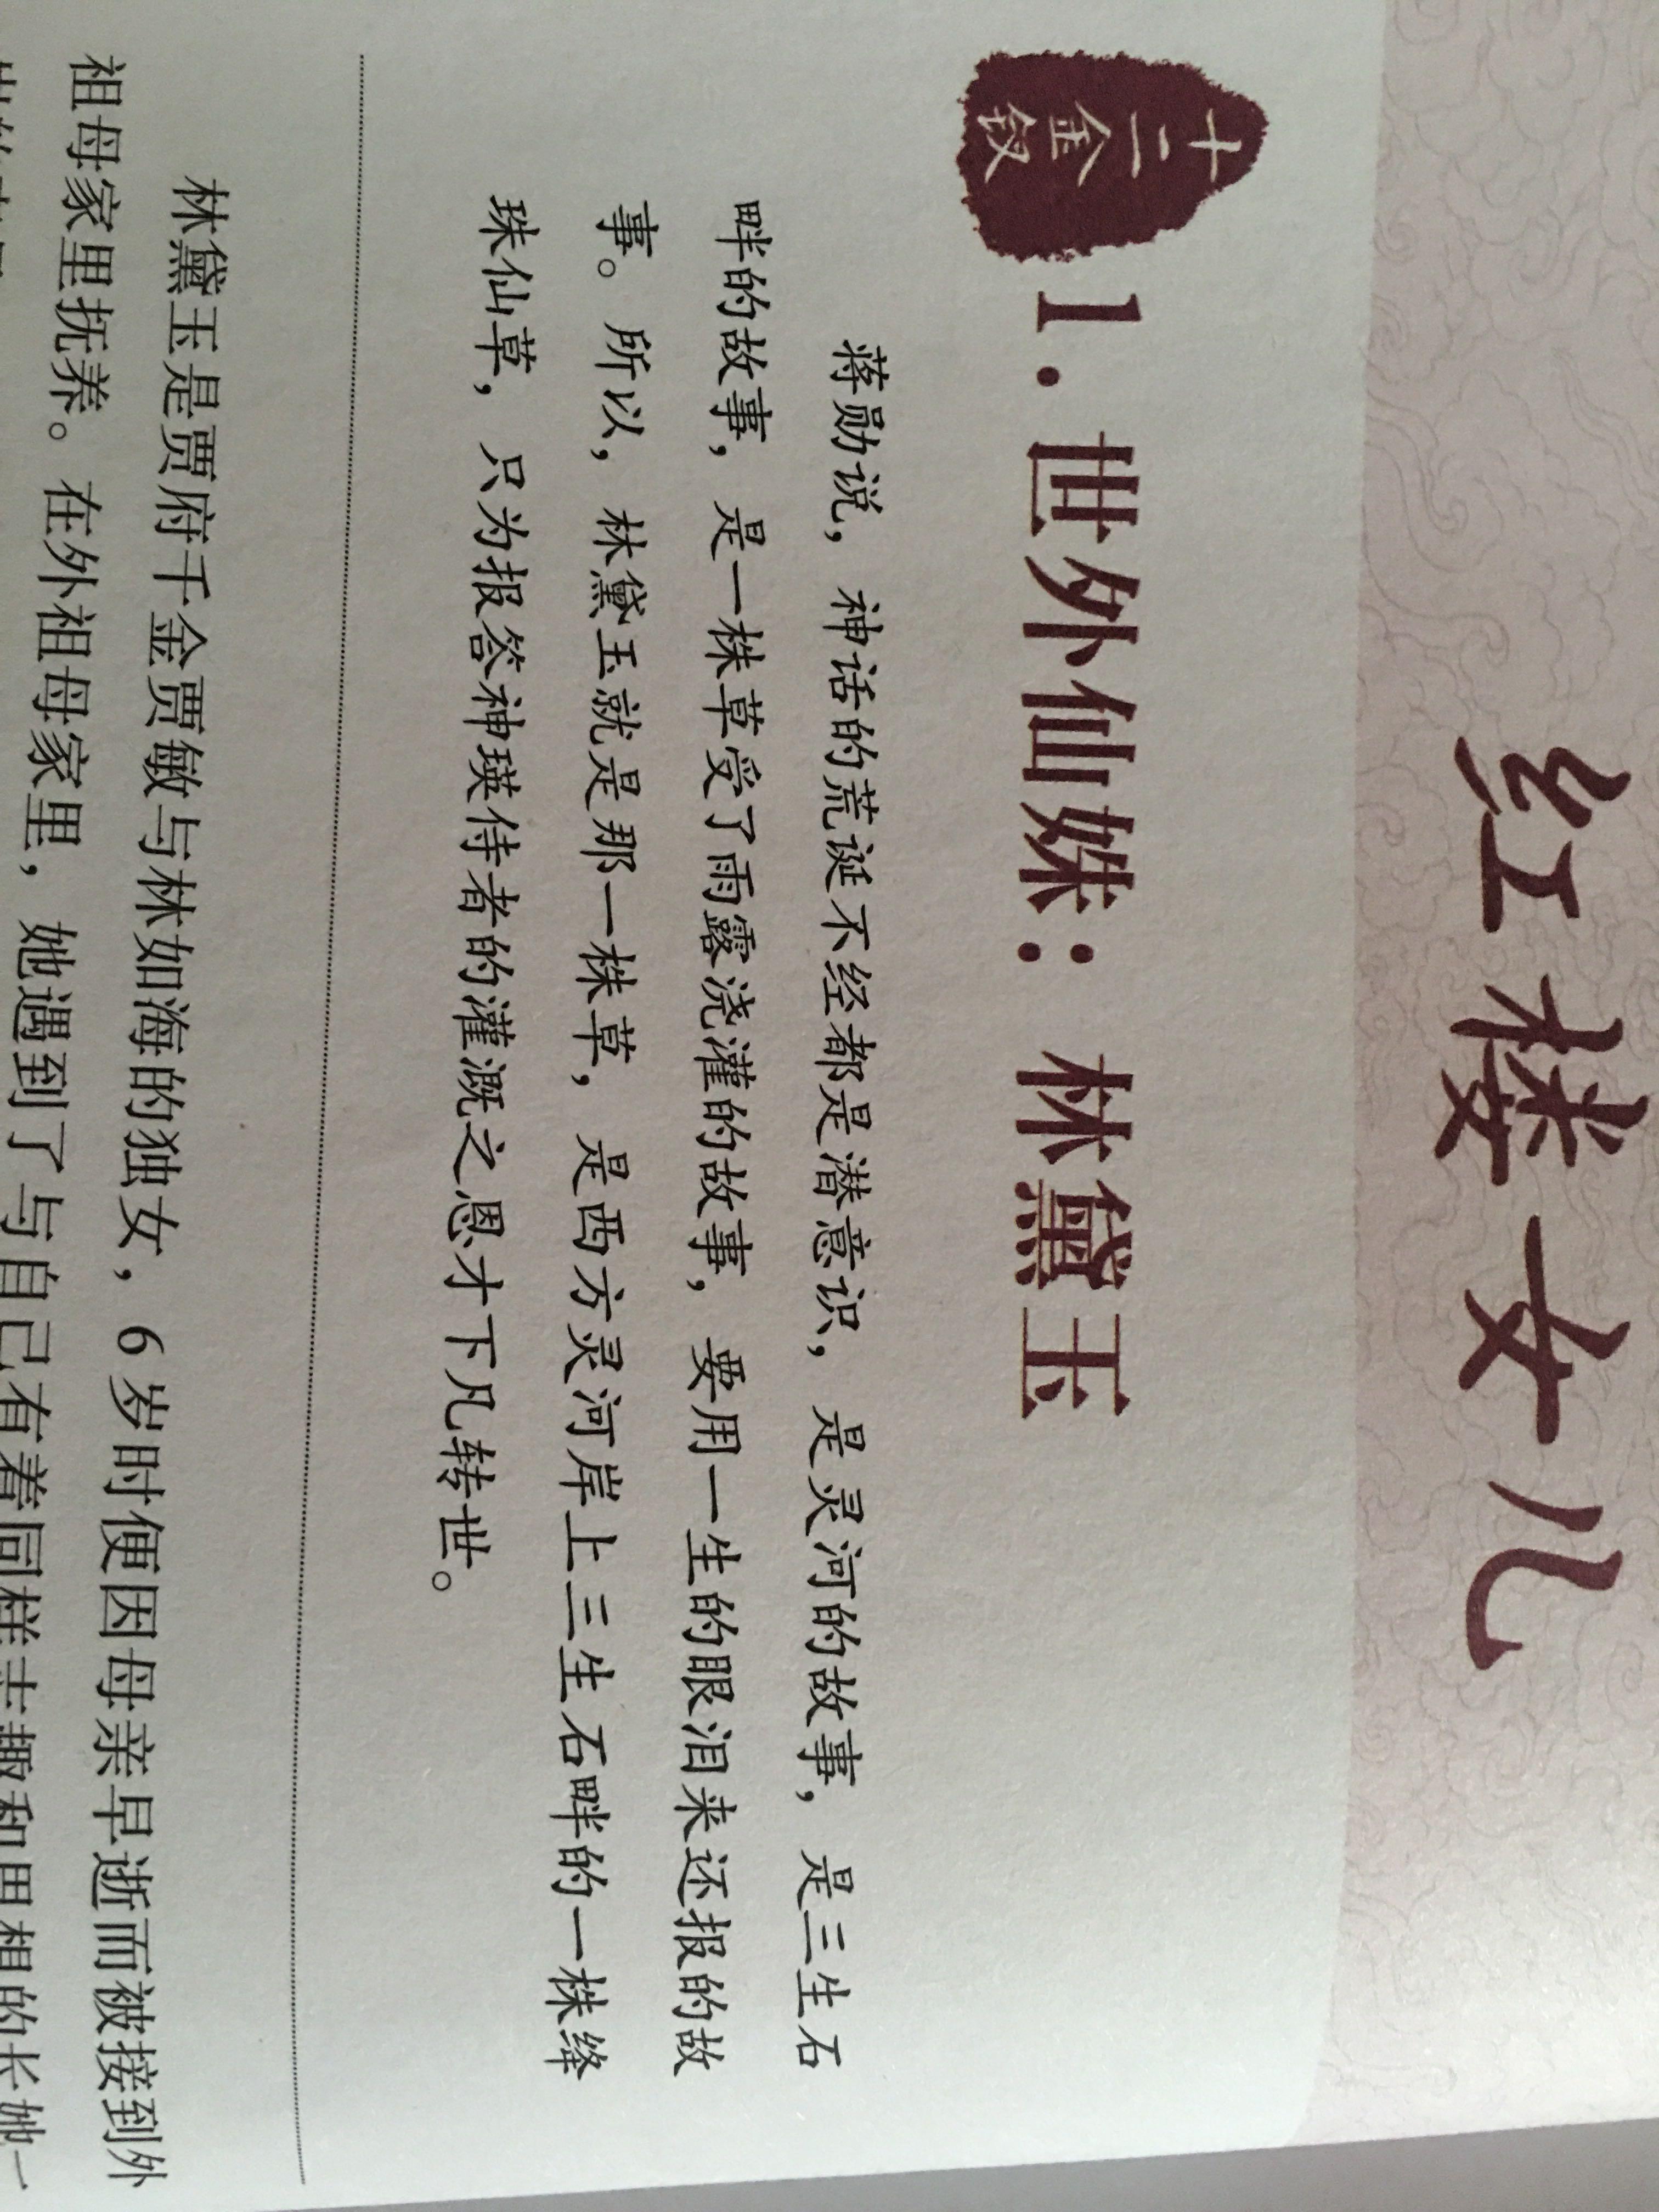 红楼女儿
十二金钗
1. 世外仙姝：林黛玉
蒋勋说，神话的荒诞不经都是潜意识，是灵河的故事，是三生石
畔的故事，是一株草受了雨露浇灌的故事，要用一生的眼泪来还报的故
事。所以，林黛玉就是那一株草，是西方灵河岸上三生石畔的一株绛
珠仙草，只为报答神瑛侍者的灌溉之恩才下凡转世。
林黛玉是贾府千金贾敏与林如海的独女，6岁时便因母亲早逝而被接到外
祖母家里抚养。在外祖母家里，她遇到了与自己有着同样志趣和思想的长她一